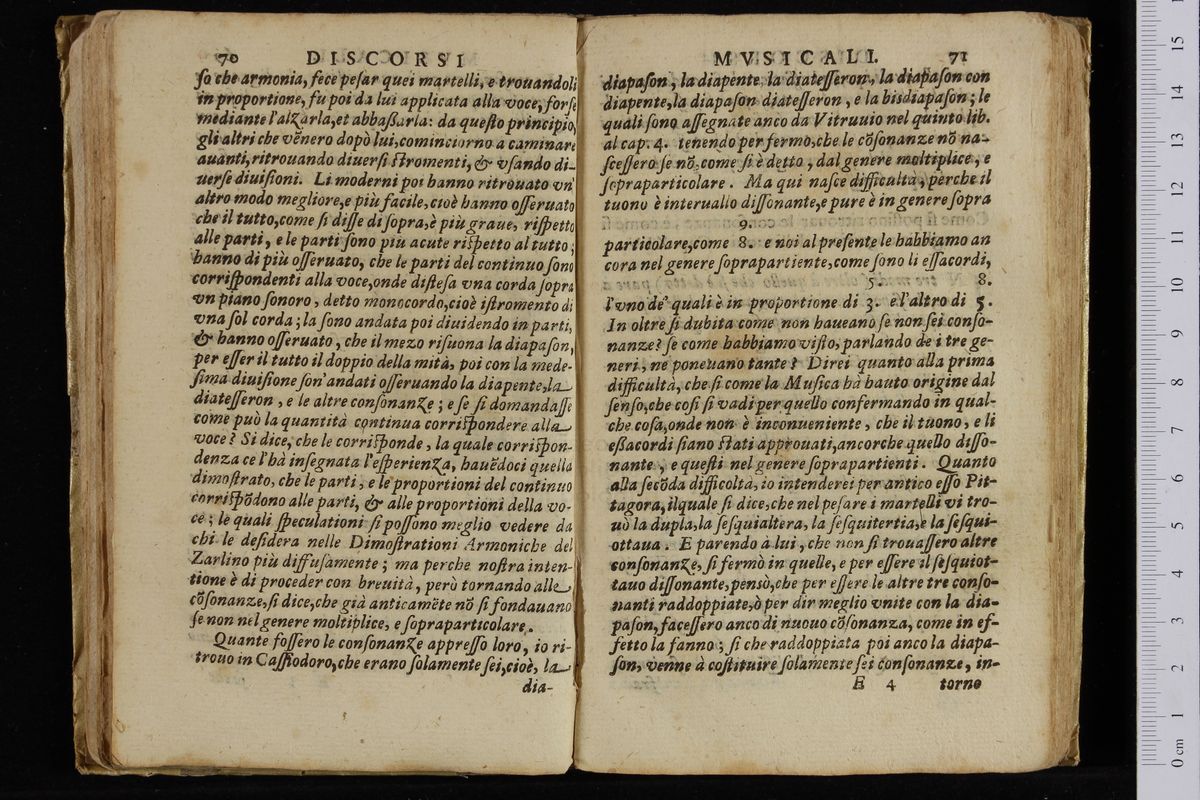 70 DISCORSI
ſo che armonia, fece peſar quei martelli, e trouandoli
in proportione, fu poi da lui applicata alla voce, forſe
mediante l'alzarla,et abbaſſarla: da queſto principio,
gli altri che vẽnero dopò lui,cominciorno a caminare
auanti,ritrouando diuerſi ſtromenti, & vſando di-
uerſe diuiſioni. Li moderni poi hanno ritrouato vn'
altro modo megliore,e più facile,cioè hanno oſſeruato
che il tutto,come ſi diſſe di ſopra,è più graue, riſpetto
alle parti, e le parti ſono più acute riſpetto al tutto;
hanno di più oſſeruato, che le parti del continuo ſono
corriſpondenti alla voce,onde diſteſa vna corda ſopra
vn piano ſonoro, detto monocordo,cioè iſtromento di
vna ſol corda; la ſono andata poi diuidendo in parti,
& hanno oſſeruato, che il mezo riſuona la diapaſon,
per eſſer il tutto il doppio della mità, poi con la mede-
ſima diuiſione ſon' andati oſſeruando la diapente,la
diateſſeron, e le altre conſonanze; e ſe ſi domandaſſe
come può la quantità continua corriſpondere alla
voce? Si dice, che le corriſponde, la quale corriſpon-
denza ce l'hà inſegnata l'eſperienza, hauẽdoci quella
dimoſtrato, che le parti, e le proportioni del continuo
corriſpõdono alle parti, & alle proportioni della vo-
ce; le quali ſpeculationi ſi poſſono meglio vedere da
chi le deſidera nelle Dimoſtrationi Armoniche del
Zarlino più diffuſamente; ma perche noſtra inten-
tione è di proceder con breuità, però tornando alle
cõſonanze,ſi dice,che già anticamẽte nõ ſi fondauano
ſe non nel genere moltiplice, e ſopraparticolare.
Quante foſſero le conſonanze appreſſo loro, io ri-
trouo in Caſſiodoro,che erano ſolamente ſei,cioè, la
dia-
MVSICALI. 71
diapaſon, la diapente la diateſſeron, la diapaſon con
diapente,la diapaſon diateſſeron, e la bisdiapaſon; le
quali ſono aſſegnate anco da Vitruuio nel quinto lib.
al cap. 4. tenendo per fermo,che le cõſonanze nõ na-
ſceſſero ſe nõ,come ſi è detto, dal genere moltiplice, e
ſopraparticolare. Ma qui naſce difficultà, perche il
tuono è interuallo diſſonante,e pure è in genere ſopra
9.
particolare,come 8. e noi al preſente le habbiamo an
cora nel genere ſoprapartiente,come ſono li eſſacordi,
5. 8.
l'vno de' quali è in proportione di 3. e l'altro di 5.
In oltre ſi dubita come non haueano ſe non ſei conſo-
nanze? ſe come habbiamo viſto, parlando de i tre ge-
neri, ne poneuano tante? Direi quanto alla prima
difficultà, che ſi come la Muſica hà hauto origine dal
ſenſo,che coſi ſi vadi per quello confermando in qual-
che coſa,onde non è inconueniente, che il tuono, e li
eſſacordi ſiano ſtati approuati,ancorche quello diſſo-
nante, e queſti nel genere ſoprapartienti. Quanto
alla ſecõda difficoltà, io intenderei per antico eſſo Pit-
tagora, ilquale ſi dice,che nel peſare i martelli vi tro-
uò la dupla,la ſeſquialtera, la ſeſquitertia,e la ſeſqui-
ottaua. E parendo à lui, che non ſi trouaſſero altre
conſonanze, ſi fermò in quelle, e per eſſere il ſeſquiot-
tauo diſſonante,pensò,che per eſſere le altre tre conſo-
nanti raddoppiate,ò per dir meglio vnite con la dia-
paſon,faceſſero anco di nuouo cõſonanza, come in ef-
fetto la fanno; ſi che raddoppiata poi anco la diapa-
ſon, venne à coſtituire ſolamente ſei conſonanze, in-
E 4 torno